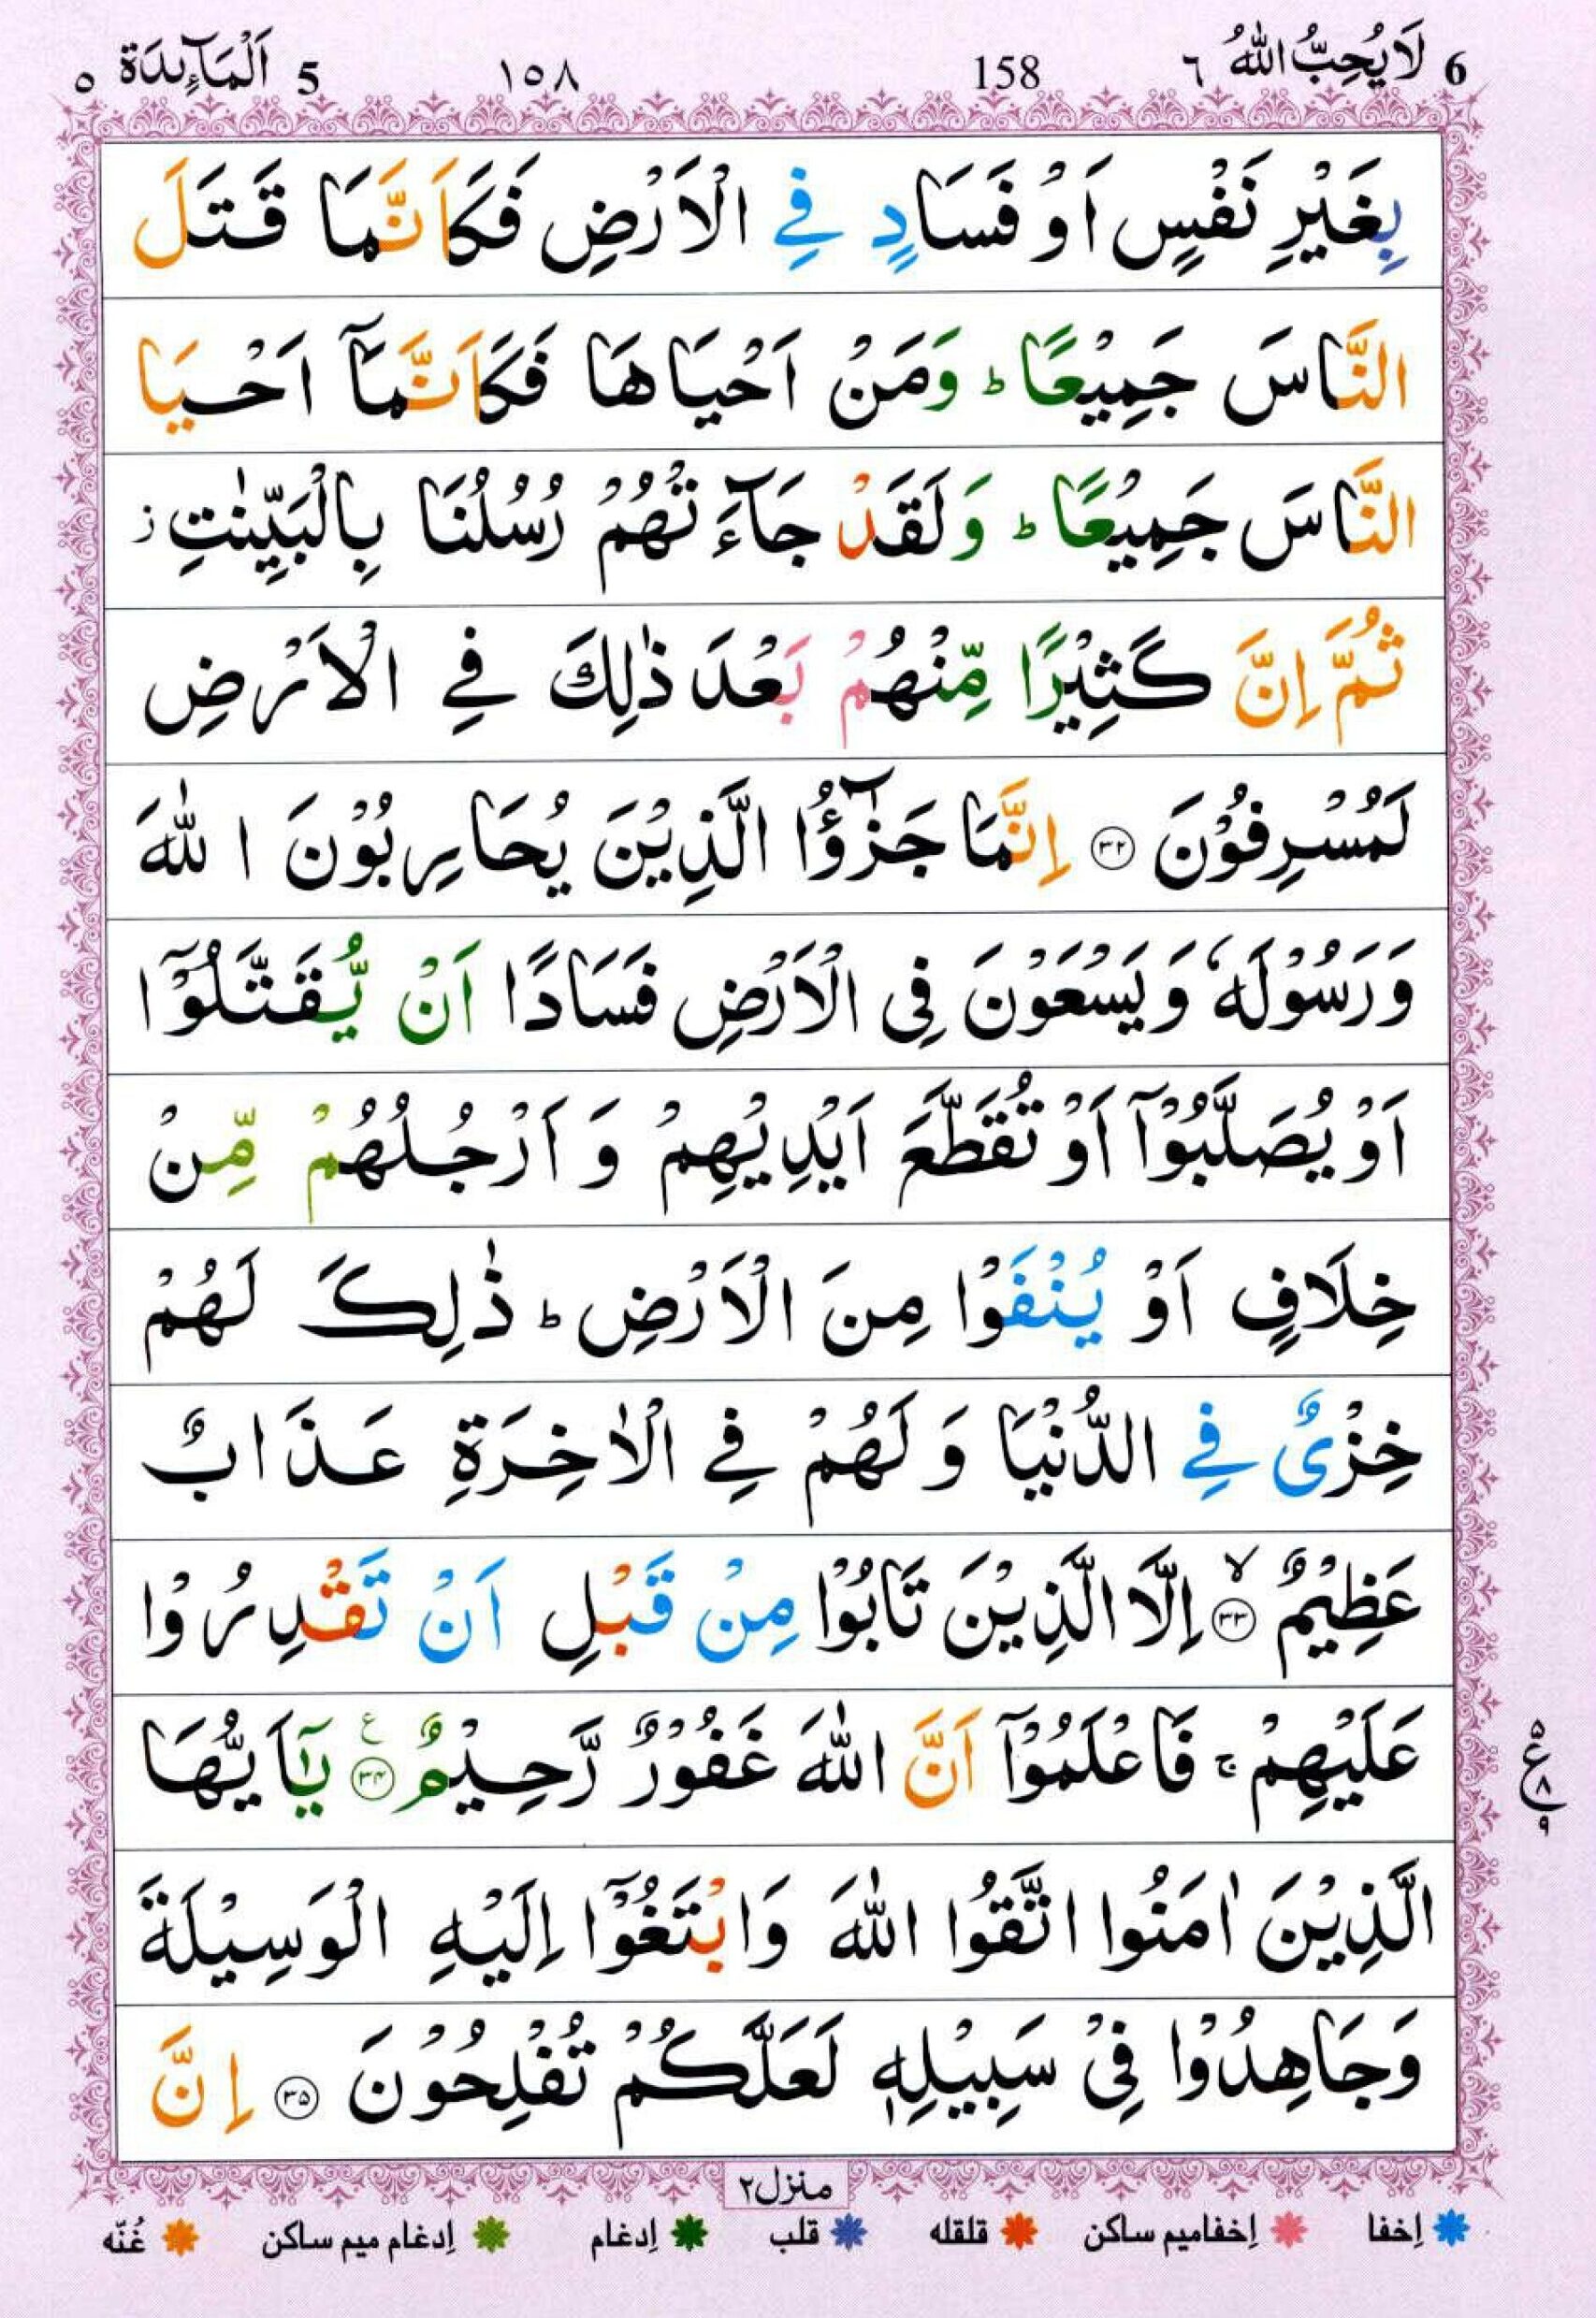 6 لَا يُحِبُّ اللهُ ٦ 158 ١٥٨ 5 اَلْمَآئِدَة ٥
بِغَيْرِ نَفْسٍ اَوْ فَسَادٍ فِي الْاَرْضِ فَكَاَنَّمَا قَتَلَ
النَّاسَ جَمِيْعًا ؕ وَمَنْ اَحْيَاهَا فَكَاَنَّمَآ اَحْيَا
النَّاسَ جَمِيْعًا ؕ وَلَقَدْ جَآءَتْهُمْ رُسُلُنَا بِالْبَيِّنٰتِ ز
ثُمَّ اِنَّ كَثِيْرًا مِّنْهُمْ بَعْدَ ذٰلِكَ فِي الْاَرْضِ
لَمُسْرِفُوْنَ ۝٣٢ اِنَّمَا جَزٰٓؤُا الَّذِيْنَ يُحَارِبُوْنَ اللهَ
وَرَسُوْلَهٗ وَيَسْعَوْنَ فِي الْاَرْضِ فَسَادًا اَنْ يُّقَتَّلُوْٓا
اَوْ يُصَلَّبُوْٓا اَوْ تُقَطَّعَ اَيْدِيْهِمْ وَ اَرْجُلُهُمْ مِّنْ
خِلَافٍ اَوْ يُنْفَوْا مِنَ الْاَرْضِ ؕ ذٰلِكَ لَهُمْ
خِزْيٌ فِي الدُّنْيَا وَ لَهُمْ فِي الْاٰخِرَةِ عَذَابٌ
عَظِيْمٌ ۝٣٣ۙ اِلَّا الَّذِيْنَ تَابُوْا مِنْ قَبْلِ اَنْ تَقْدِرُوْا
عَلَيْهِمْ ۚ فَاعْلَمُوْٓا اَنَّ اللهَ غَفُوْرٌ رَّحِيْمٌ ۝٣٤ ع يٰٓاَيُّهَا
٥
ع
٨
٩
الَّذِيْنَ اٰمَنُوا اتَّقُوا اللهَ وَابْتَغُوْٓا اِلَيْهِ الْوَسِيْلَةَ
وَجَاهِدُوْا فِيْ سَبِيْلِهٖ لَعَلَّكُمْ تُفْلِحُوْنَ ۝٣٥ اِنَّ
منزل٢
اِخفا اِخفامیم ساکن قلقله قلب اِدغام اِدغام میم ساکن غُنّه